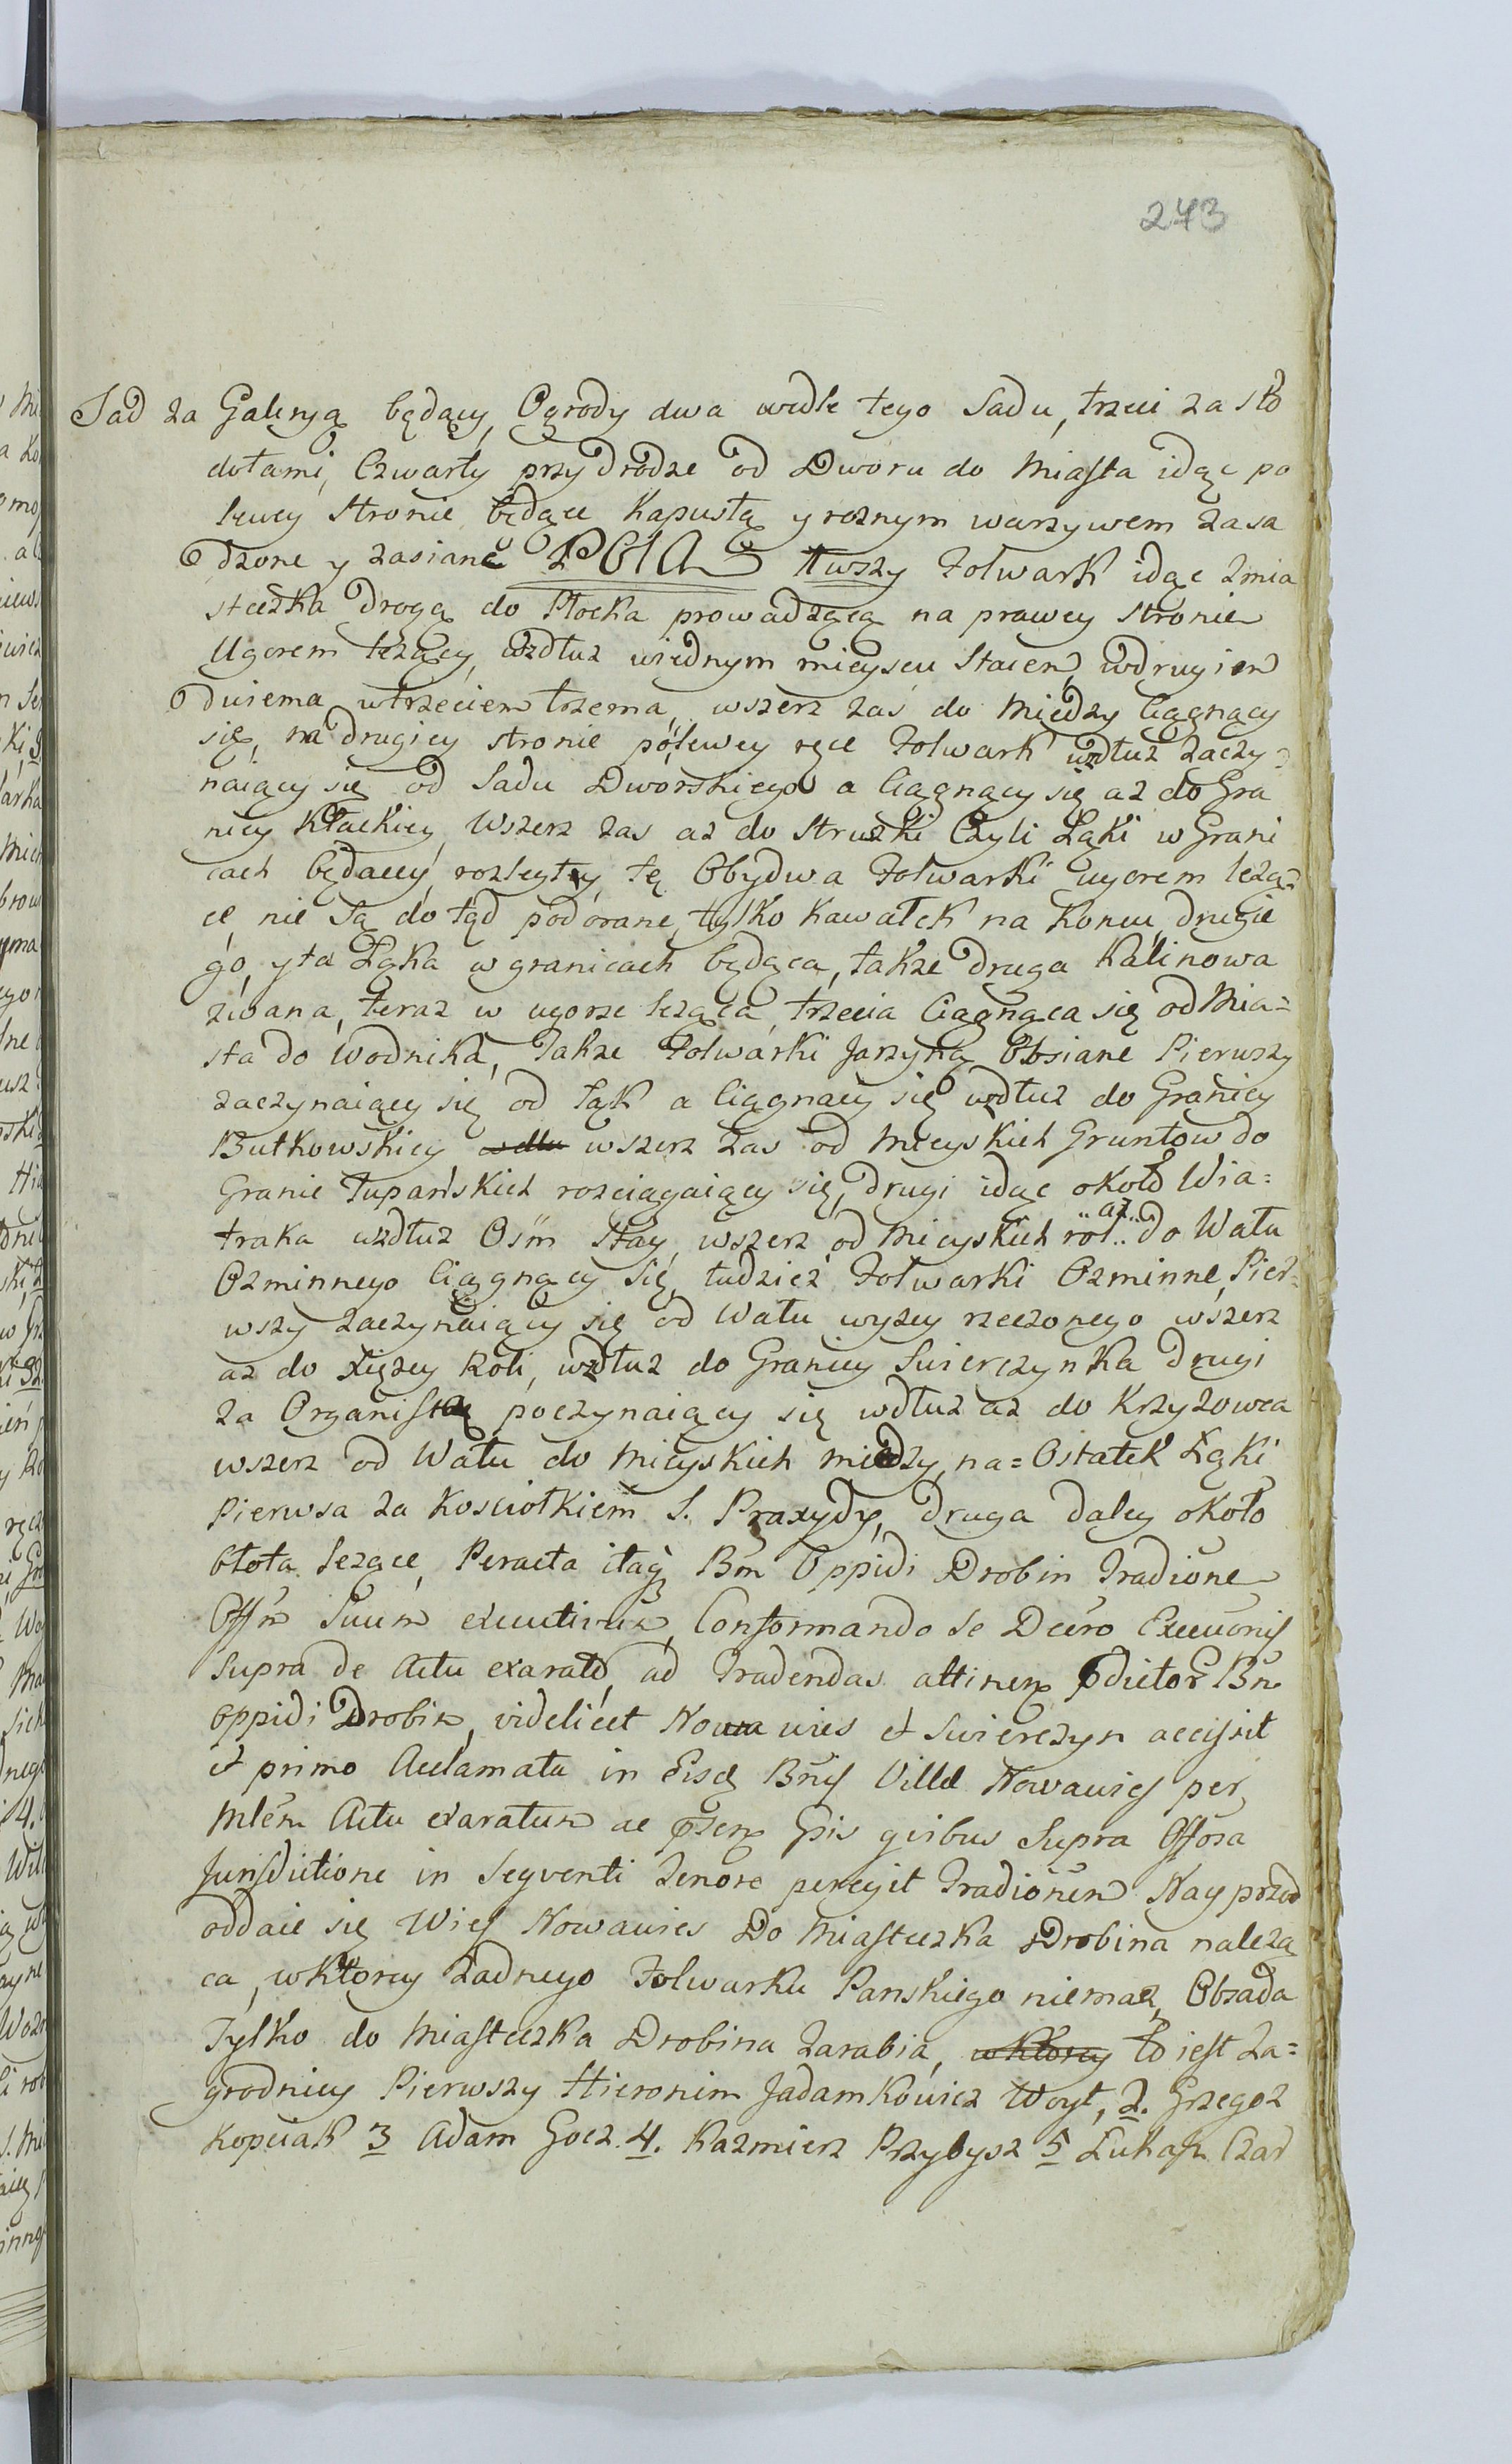 273
Sad za Galeryą będący, Ogrody dwa wedle tego Sadu, trzeci za sto
dołami, Czwarty przy drodze od Dworu do Miasta idąc po
lewey stronie będące Kapustą y roznym warzywem zasa
dzone y zasiane POLA 1wszy Folwark idąc zmia
steczka drogą do Płocka prowadzącą na prawey stronie
Ugorem leżący, wzdłuz wiednym mieyscu Staiem, wdrugiem
dwiema, wtrzeciem trzema, wszerz zaś do Miedzy Ciągnący
się, na drugiey stronie po lewey ręce Folwark wzdłuz zaczy=
naiący się od Sadu Dworskiego a Ciągnący się az do Gra
nicy Kłackiey, Wszerz zas az do Struzki Czyli Łąki w Grani
cach będącey, rozległy, te Obydwa Folwarki ugorem leżą=
ce, nie są do tąd podorane, tylko Kawałek na Koncu drugie
go, y ta Łąka w granicach będąca, takze druga Kalinowa
zwana, teraz w ugorze leząca, trzecia Ciągnąca się od Mia=
sta do Wodnika, Takze Folwarki Jarzyną Obsiane Pierwszy
zaczynaiący się od Łąk a Ciągnący się wzdłuz do Granicy
Butkowskiey wdłu wszerz zas od Mieyskich Gruntow do
Granic Łupańskich rozciągaiący się, drugi idąc około Wia=
traka wzdłuz Osm Stay, wszerz od Mieyskich rol az do Wału
Ozminnego Ciągnący się, tudziez Folwarki Ozminne, Pier=
wszy zaczynaiący się od Wału wyzey rzeczonego wszerz
az do Xięzey Roli, wzdłuz do Granicy Swierczynka drugi
za Organistą poczynaiący się wdłuz az do Krzyzowca
wszerz od Wału do Mieyskich miedzy, na=Ostatek Łąki
Pierwsa za Kosciołkiem S. Praxydy, druga daley około
błota lezące, Peracta itaq Bm Oppidi Drobin Tradione
Offm Suum executivum, Conformando se Decro Execuonis
supra de Actu exarato, ad Tradendas attinen pdictor Bm
oppidi Drobin, videlicet Nowa wies et Swierczyn accessit
et primo Acclamata in Eisd Bnis Villa Nowawies per
Mlem Actu exaratum ac psen Gis quibus Supra Offosa
Jurisdictione in Sequenti Tenore peregit Tradionem Nay przod
oddaie się Wies Nowawies Do Miasteczka Drobina nalezą
ca, wktorey zadnego Folwarku Panskiego niemasz, Obsada
Tylko do Miasteczka Drobina zarabia, wktorey to iest Za=
grodnicy Pierwszy Hieronim Jadamkowicz Woyt, 2. Grzegoz
Kopciak 3 Adam Gocz. 4. Kazmierz Przybysz 5 Łukasz Czar